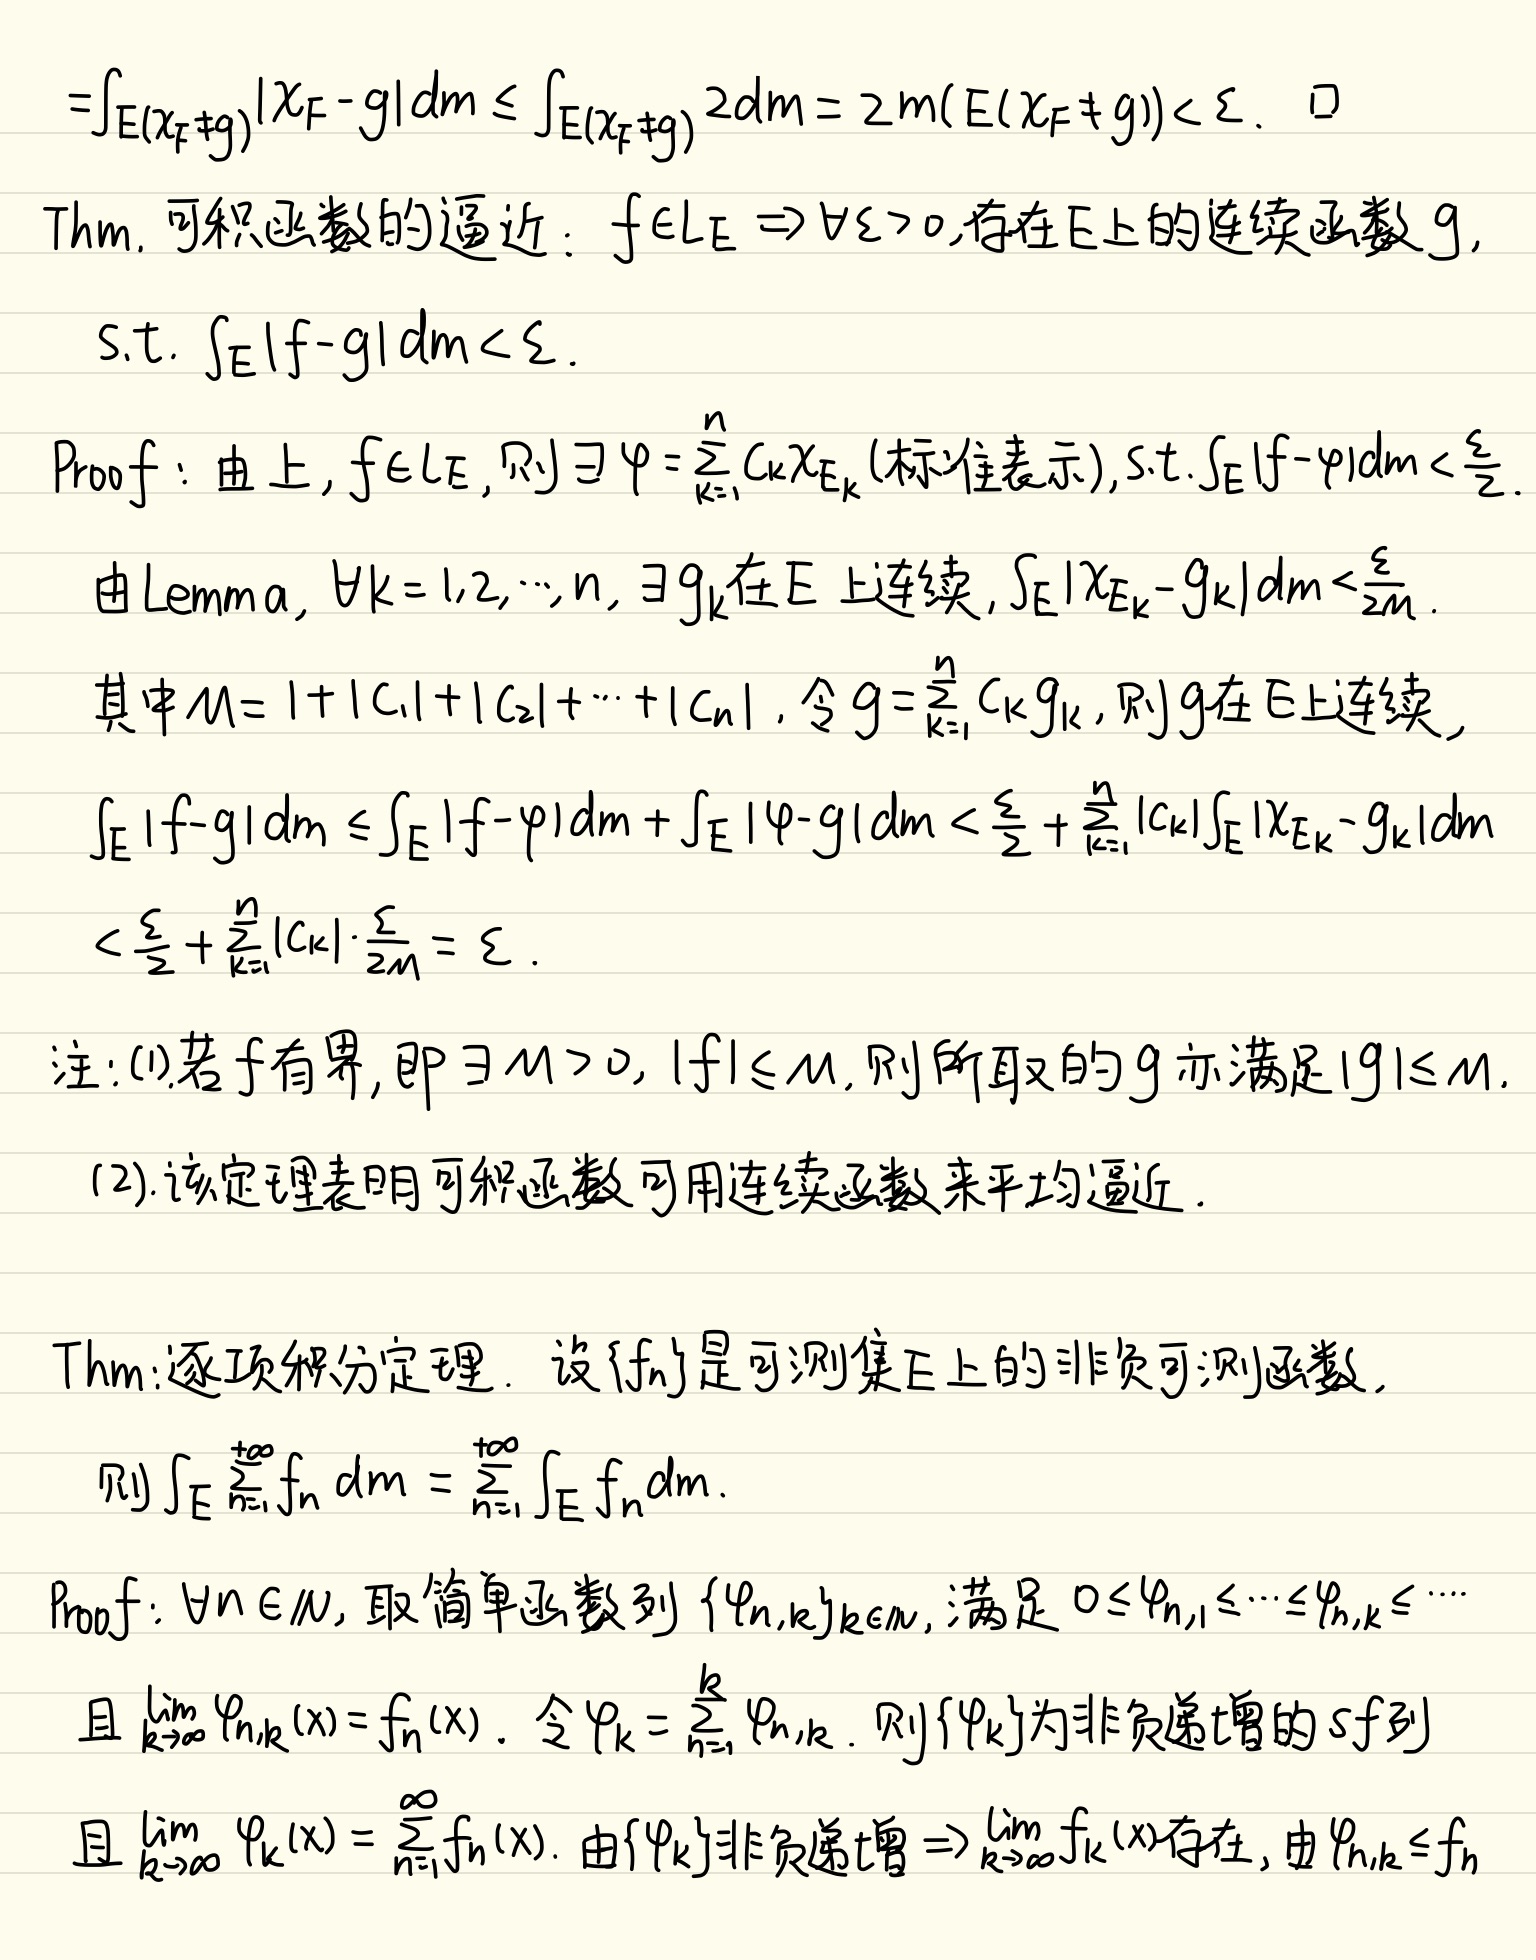 =∫_{E(χ_F≠g)} |χ_F-g|dm ≤ ∫_{E(χ_F≠g)} 2dm = 2m(E(χ_F≠g)) < ε. □
Thm. 可积函数的逼近: f∈L_E ⇒ ∀ε>0, 存在E上的连续函数g,
s.t. ∫_E |f-g|dm < ε.
Proof: 由上, f∈L_E, 则∃φ=∑_{k=1}^{n} C_kχ_{E_k} (标准表示), s.t. ∫_E |f-φ|dm < ε/2.
由Lemma, ∀k=1,2,…,n, ∃g_k在E上连续, ∫_E |χ_{E_k}-g_k|dm < ε/2M.
其中M=1+|C_1|+|C_2|+…+|C_n|. 令g=∑_{k=1}^{n} C_kg_k, 则g在E上连续,
∫_E |f-g|dm ≤ ∫_E |f-φ|dm + ∫_E |φ-g|dm < ε/2 + ∑_{k=1}^{n} |C_k|∫_E |χ_{E_k}-g_k|dm
< ε/2 + ∑_{k=1}^{n} |C_k|·ε/2M = ε.
注:(1).若f有界, 即∃M>0, |f|≤M, 则所取的g亦满足|g|≤M.
(2).该定理表明可积函数可用连续函数来平均逼近.
Thm:逐项积分定理. 设{f_n}是可测集E上的非负可测函数.
则∫_E ∑_{n=1}^{+∞} f_n dm = ∑_{n=1}^{+∞} ∫_E f_n dm.
Proof: ∀n∈N, 取简单函数列{φ_{n,k}}_{k∈N}, 满足 0≤φ_{n,1}≤…≤φ_{n,k}≤…
且 lim_{k→∞} φ_{n,k}(x)=f_n(x). 令φ_k=∑_{n=1}^{k} φ_{n,k}. 则{φ_k}为非负递增的sf列
且 lim_{k→∞} φ_k(x)=∑_{n=1}^{∞} f_n(x). 由{φ_k}非负递增 ⇒ lim_{k→∞} f_k(x)存在, 由φ_{n,k}≤f_n